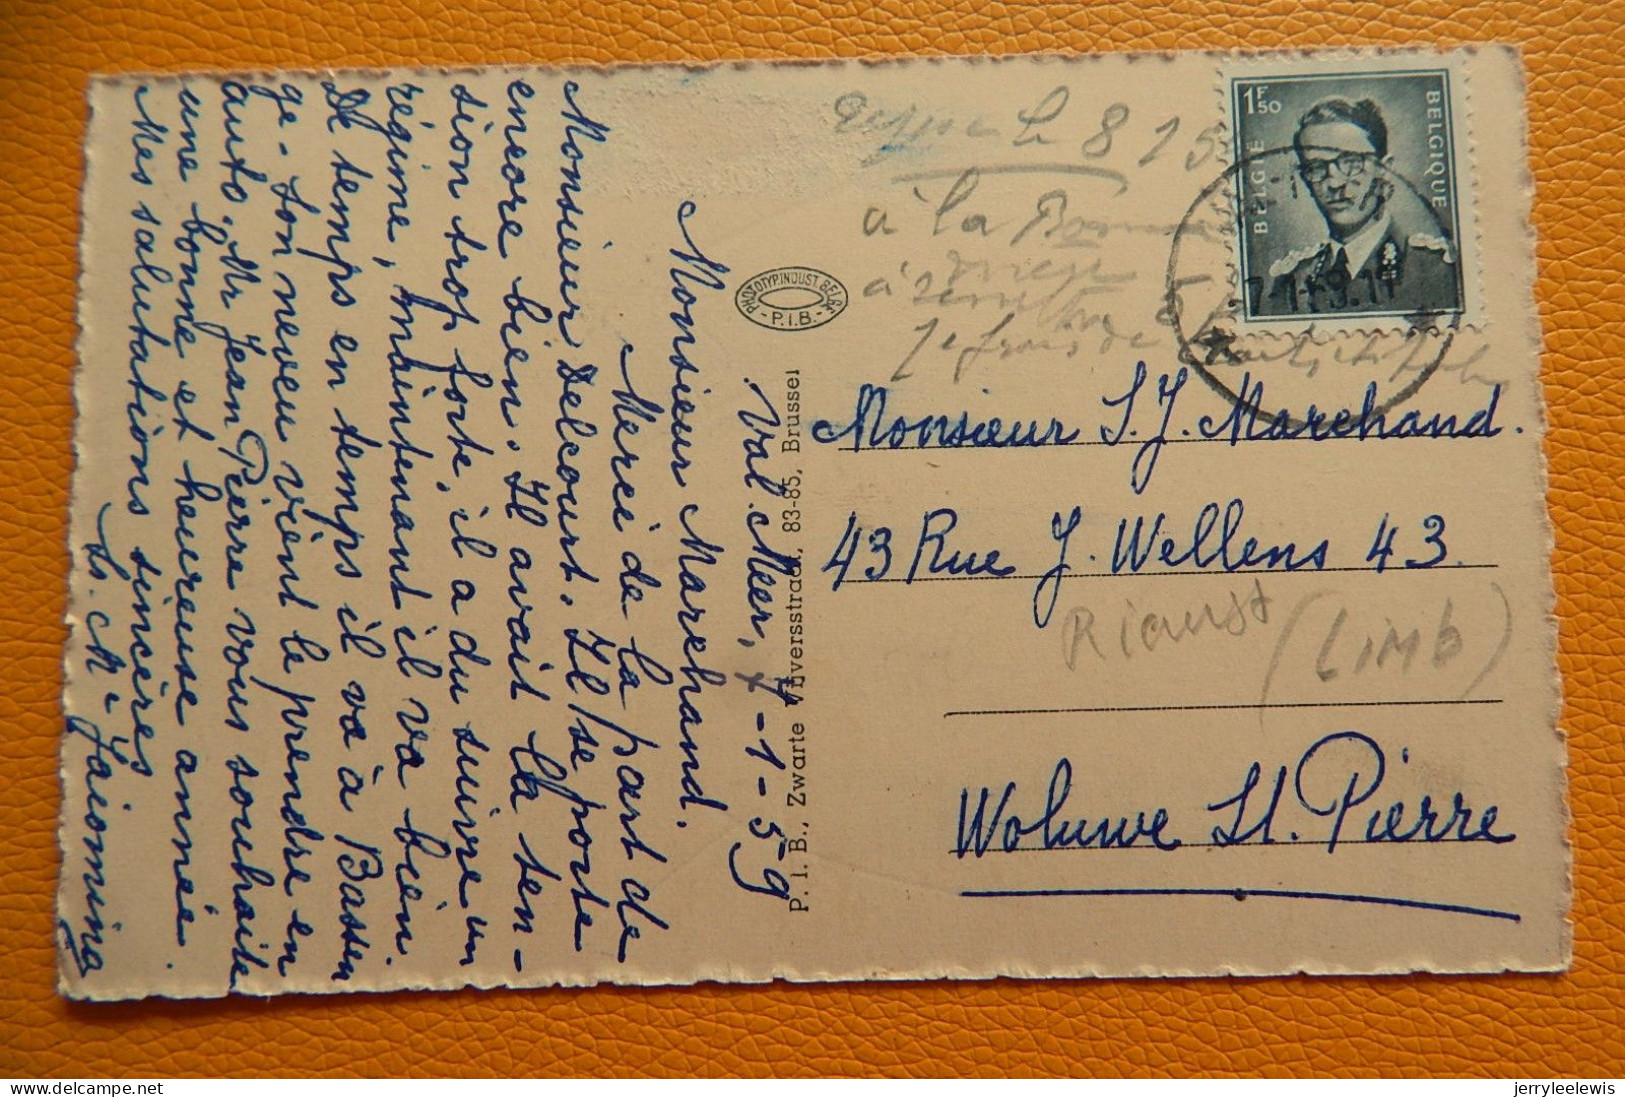 Val. Meer, 7-1-59
Monsieur Marechand.
Merci de la part de
Monsieur Delcourt. Il se porte
encore bien. Il avait la ten-
sion trop forte, il a du suivre un
régime, maintenant il va bien.
De temps en temps il va à Bassen
ge - Son neveu vient le prendre en
auto. Mr Jean Pierre vous souhaite
une bonne et heureuse année.
Mes salutations sincères
Sr. Mie Jacomina
PHOTOTYP. INDUST. BELGE
- P.I.B. -
P. I. B., Zwarte Vijversstraat, 83-85, Brussel
le 8 1 5
à la
à remettre
BELGIE
BELGIQUE
1F50
7-1-59.17
Monsieur S. J. Marechand.
43 Rue J. Wellens 43.
Riemst (Limb)
Woluwe St. Pierre
jerryleelewis